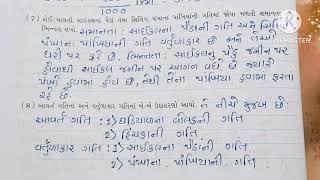 1000
(7) કોઈ ચાલતી સાઈકલના પૈડાં તથા સિલિંગ પંખાનાં પાંખિયાંની ગતિમાં જોવા મળતી સમાનતા
સમાનતા : સાઈકલના પૈડાની ગતિ અને સિલિંગ
પંખાના પાંખિયાની ગતિ વર્તુળાકાર છે અને તેમની
ધરી પર ફરે છે. ભિન્નતા : સાઈકલનું પૈડું જમીન પર
હોવાથી સાઈકલ જમીન પર આગળ વધે છે જ્યારે
પંખો હવામાં હોય છે, તેથી તેના પાંખિયા હવામાં ફરતા
રહે છે.
(8) આવર્ત ગતિના અને વર્તુળાકાર ગતિનાં બે-બે ઉદાહરણો આપો. તે નીચે મુજબ છે :
આવર્ત ગતિ : 1) ઘડિયાળના લોલકની ગતિ
2) હિંચકાની ગતિ
વર્તુળાકાર ગતિ : 1) સાઈકલના પૈડાની ગતિ
2) પંખાના પાંખિયાની ગતિ.
KINEMASTER